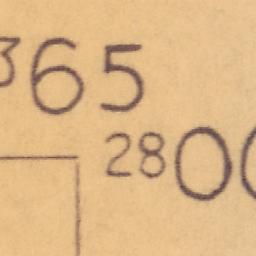 365
2800